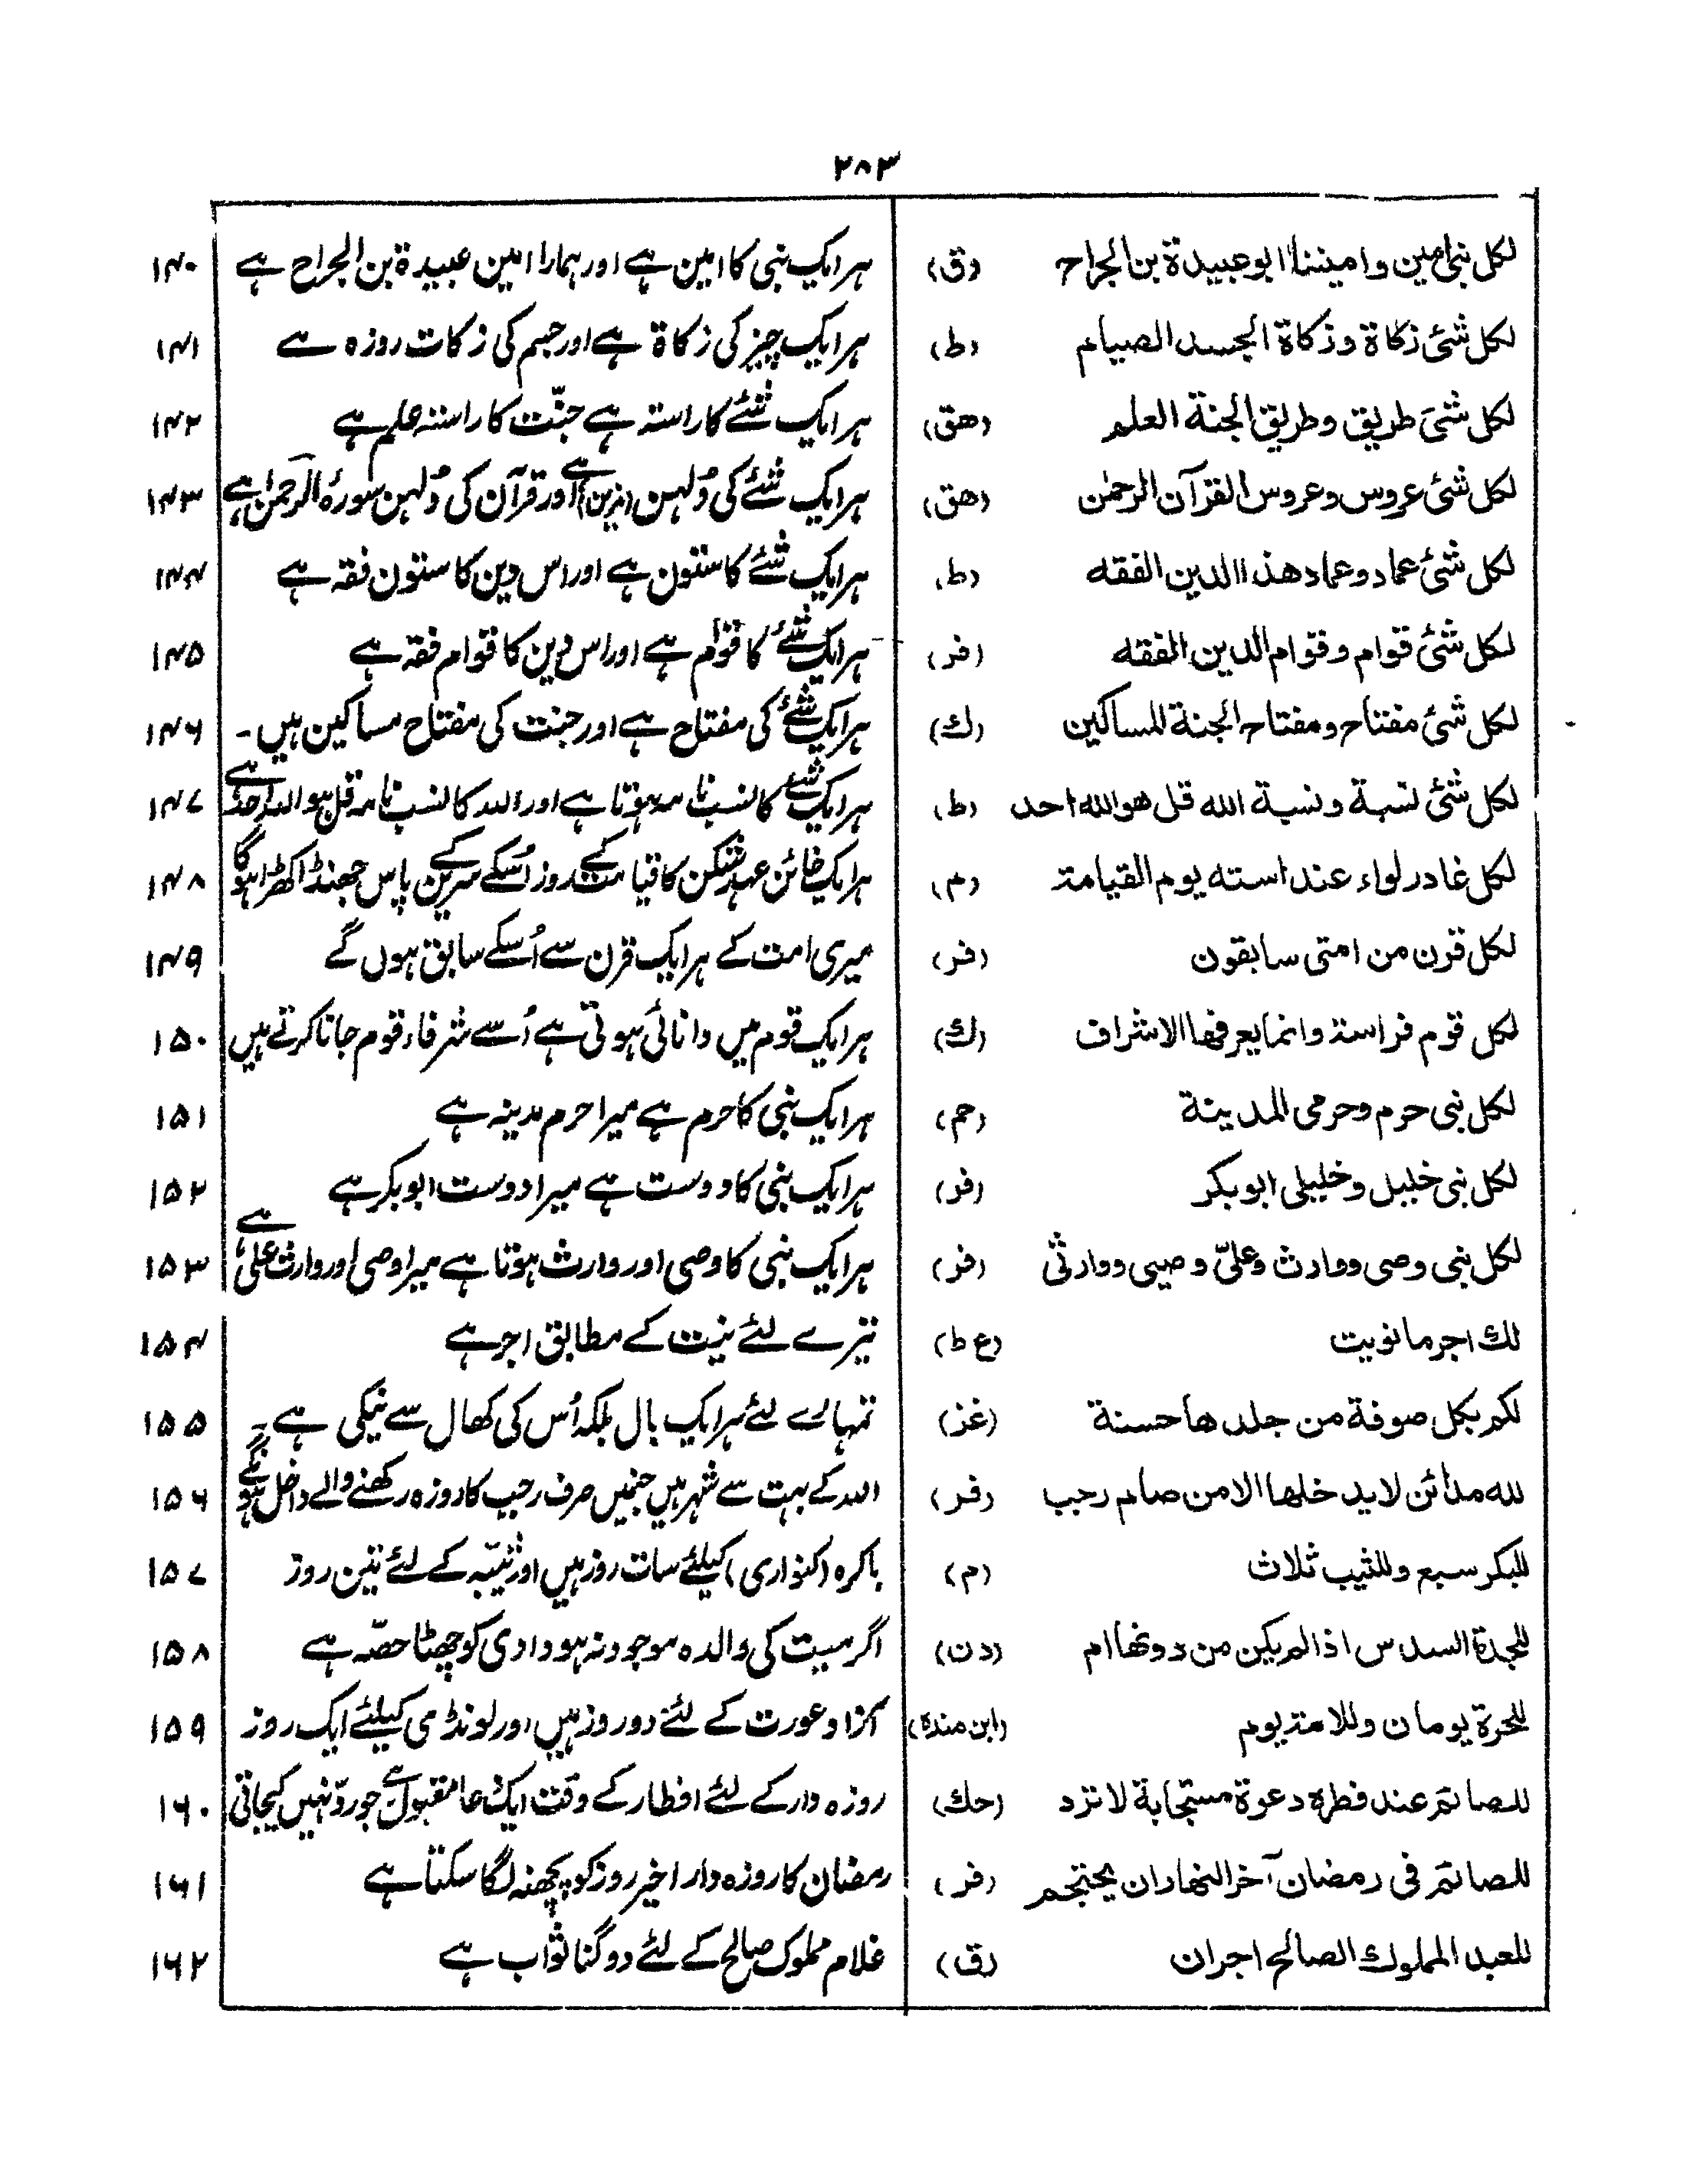 ۲۸۳
لکل نبی امین وامیننا ابوعبیدة بن الجراح (ق) ہر ایک نبی کا امین ہے اور ہمارا امین عبیدۃ بن الجراح ہے ۱۴۰
لکل شئ زکاة وزکاة الجسد الصیام (ط) ہر ایک چیز کی زکاۃ ہے اور جسم کی زکات روزہ ہے ۱۴۱
لکل شئ طریق وطریق الجنة العلم (هق) ہر ایک شئے کا راستہ ہے جنّت کا راستہ علم ہے ۱۴۲
لکل شئ عروس وعروس القرآن الرحمٰن (هق) ہر ایک شئے کی دُلہن (زین) ہے اور قرآن کی دُلہن سورۂ الرحمٰن ہے ۱۴۳
لکل شئ عماد وعماد هذا الدین الفقه (ط) ہر ایک شئے کا ستون ہے اور اس دین کا ستون فقہ ہے ۱۴۴
لکل شئ قوام وقوام الدین الفقه (فر) ہر ایک شئے کا قوام ہے اور اس دین کا قوام فقہ ہے ۱۴۵
لکل شئ مفتاح ومفتاح الجنة المساکین (ك) ہر ایک شئے کی مفتاح ہے اور جنت کی مفتاح مساکین ہیں۔ ۱۴۶
لکل شئ نسبة ونسبة الله قل هوالله احد (ط) ہر ایک شئے کا نسب نامہ ہوتا ہے اور اللہ کا نسب نامہ قل ہو اللہ احد ہے ۱۴۷
لکل غادر لواء عند استه یوم القیامة (م) ہر ایک خائن عہد شکن کا قیامت کے روز اُسکے سرین کے پاس جھنڈا کھڑا ہوگا ۱۴۸
لکل قرن من امتی سابقون (فر) میری امت کے ہر ایک قرن سے اُسکے سابق ہوں گے ۱۴۹
لکل قوم فراسة وانما یعرفها الاشراف (ك) ہر ایک قوم میں دانائی ہوتی ہے اُسے شرفاء قوم جانا کرتے ہیں ۱۵۰
لکل نبی حرم وحرمی المدینة (حم) ہر ایک نبی کا حرم ہے میرا حرم مدینہ ہے ۱۵۱
لکل نبی خلیل وخلیلی ابوبکر (فر) ہر ایک نبی کا دوست ہے میرا دوست ابوبکر ہے ۱۵۲
لکل نبی وصی ووارث وعلیّ وصیی ووارثی (فر) ہر ایک نبی کا وصی اور وارث ہوتا ہے میرا وصی اور وارث علیؓ ہے ۱۵۳
لك اجر ما نویت (ع ط) تیرے لئے نیت کے مطابق اجر ہے ۱۵۴
لکم بکل صوفة من جلدها حسنة (غز) تمہارے لئے ہر ایک بال بلکہ اُس کی کھال سے نیکی ہے۔ ۱۵۵
لله مدائن لا یدخلها الا من صام رجب (فر) اللہ کے بہت سے شہر ہیں جنمیں صرف رجب کا روزہ رکھنے والے داخل ہونگے ۱۵۶
للبکر سبع وللثیب ثلاث (م) باکرہ (کنواری) کیلئے سات روز ہیں اور ثیّبہ کے لئے تین روز ۱۵۷
للجدة السدس اذا لم یکن من دونها ام (دن) اگر میت کی والدہ موجود نہ ہو دادی کو چھٹا حصّہ ہے ۱۵۸
للحرة یومان وللامة یوم (ابن مندة) آزاد عورت کے لئے دو روز ہیں اور لونڈی کیلئے ایک روز ۱۵۹
للصائم عند فطره دعوة مستجابة لا ترد (حك) روزہ دار کے لئے افطار کے وقت ایک دعا مقبول ہے جو ردّ نہیں کیجاتی ۱۶۰
للصائم فی رمضان آخر النهار ان یحتجم (فر) رمضان کا روزہ دار اخیر روز کو پچھنہ لگا سکتا ہے ۱۶۱
للعبد المملوك الصالح اجران (ق) غلام مملوک صالح کے لئے دوگنا ثواب ہے ۱۶۲